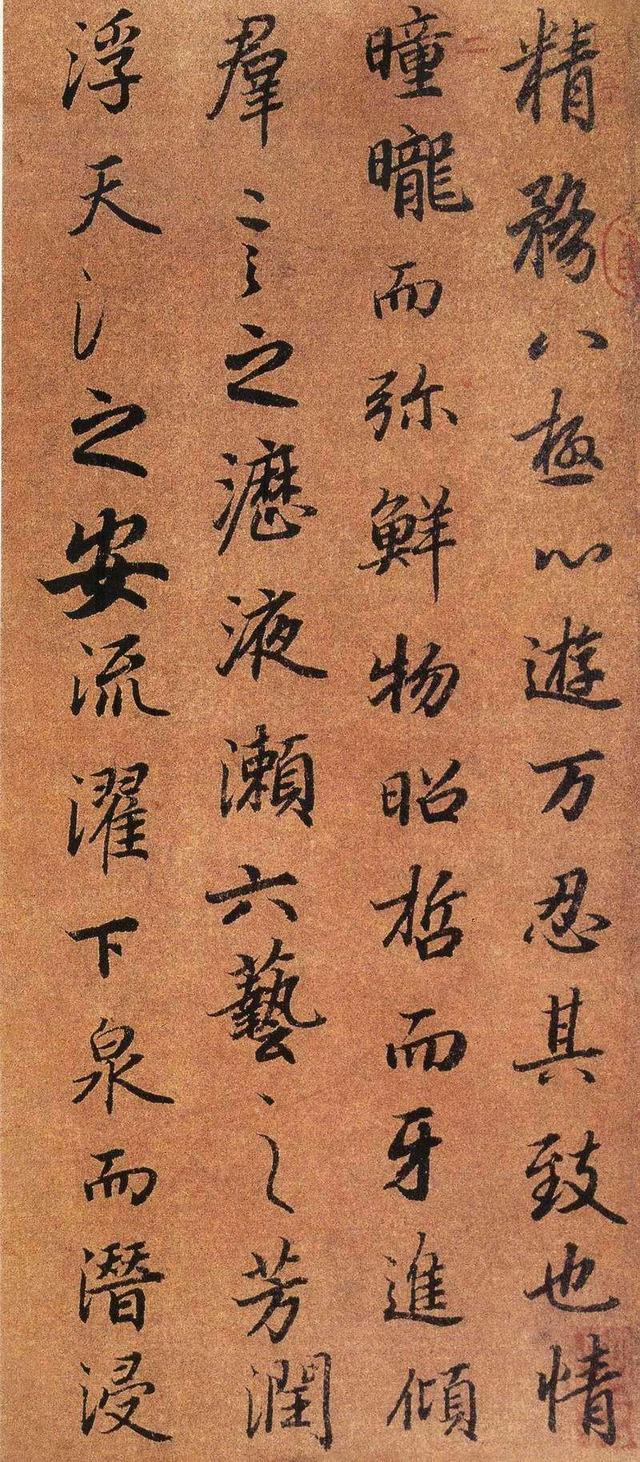 精務八極心遊万忍其致也情
曈曨而弥鮮物昭晢而牙進傾
羣言之瀝液瀬六藝之芳潤
浮天氵之安流濯下泉而潛浸